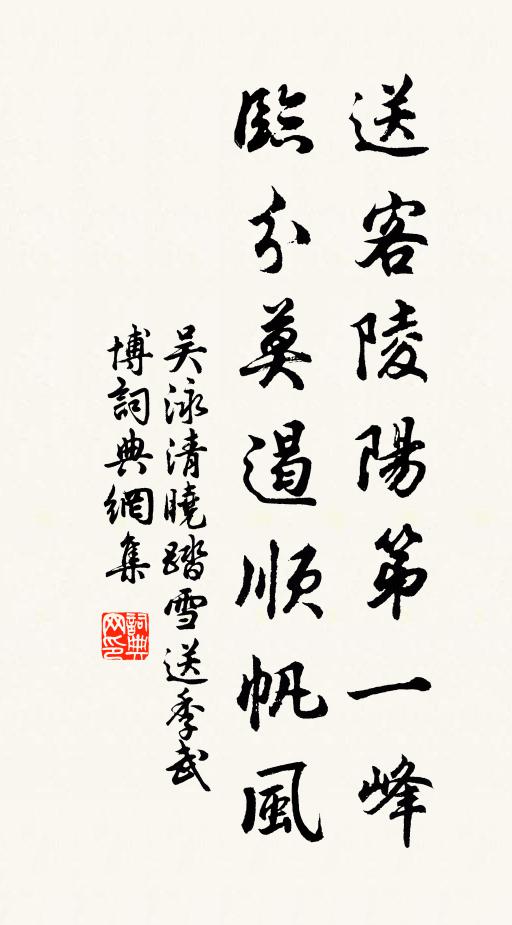 送客陵陽第一峰
臨分莫遏順帆風
吴泳清曉踏雪送季武
博詞典網集
詞典网印